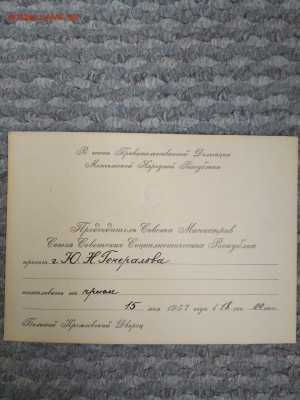 В честь Правительственной Делегации
Монгольской Народной Республики
Председатель Совета Министров
Союза Советских Социалистических Республик
просит г. Ю. Н. Генералова
пожаловать на прием
15 мая 1957 года в 18 час. 00 мин.
Большой Кремлевский Дворец